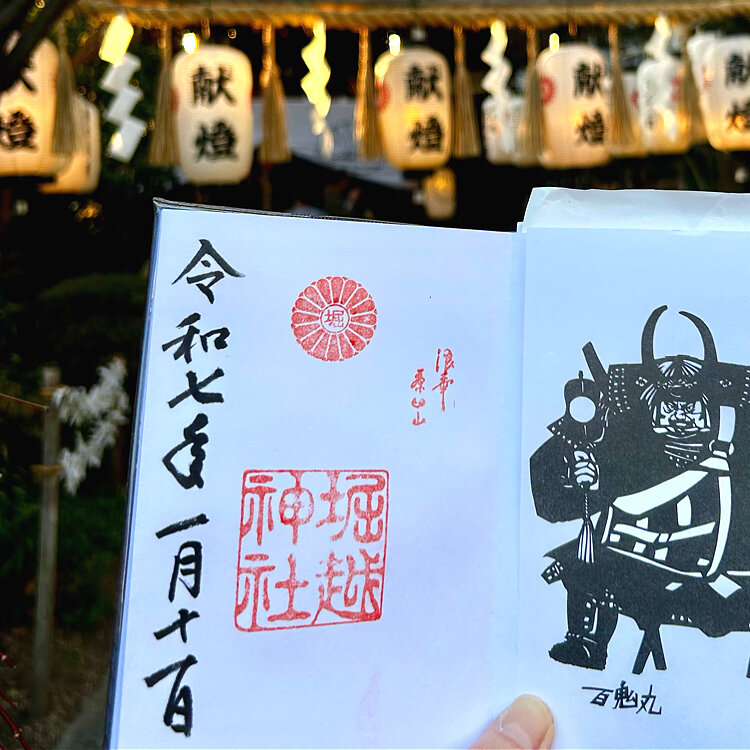 献燈
献燈
献燈
献燈
献燈
令和七年一月十一日
堀
浪華
茶臼山
堀越
神社
百鬼丸